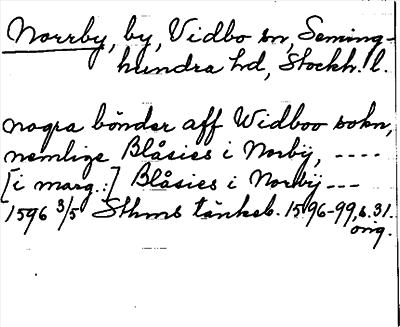 Norrby, by, Vidbo sn, Seming-
hundra hd, Stockh. l.
nogra bönder aff Widboo sokn,
nemlige Blåsies i Norbÿ, ----
[i marg.:] Blåsies i Norbÿ ---
1596 3/5 Sthms tänkeb. 1596-99, s. 31.
orig.